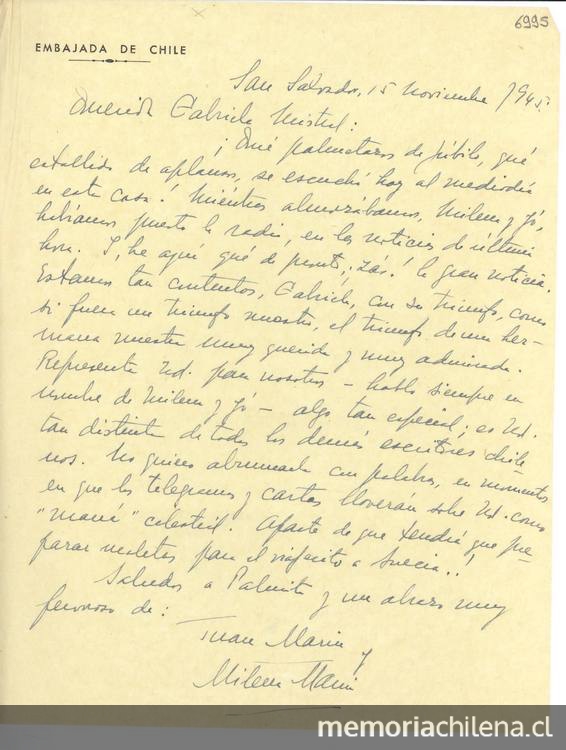 6995
EMBAJADA DE CHILE
San Salvador, 15 noviembre 1945.
Querida Gabriela Mistral:
¡Qué palmetazos de júbilo, qué
estallido de aplausos, se escuchó hoy al mediodía
en esta casa! Mientras almorzábamos, Milena y yó,
habíamos puesto la radio, en las noticias de última
hora. I, he aquí qué de pronto, ¡zás! la gran noticia.
Estamos tan contentos, Gabriela, con su triunfo, como
si fuera un triunfo nuestro, el triunfo de una her-
mana nuestra muy querida y muy admirada.
Representa Ud. para nosotros - hablo siempre en
nombre de Milena y yó - algo tan especial; es Ud.
tan distinta de todos los demás escritores chile-
nos. No quiero abrumarla con palabras, en momentos
en que los telegramas y cartas lloverán sobre Ud. como
"maná" celestial. Aparte de que tendrá que pre-
parar maletas para el viajecito a Suecia..!
Saludos a Palmita y un abrazo muy
fervoroso de:
Juan Marin
y
Milena Marin
memoriachilena.cl